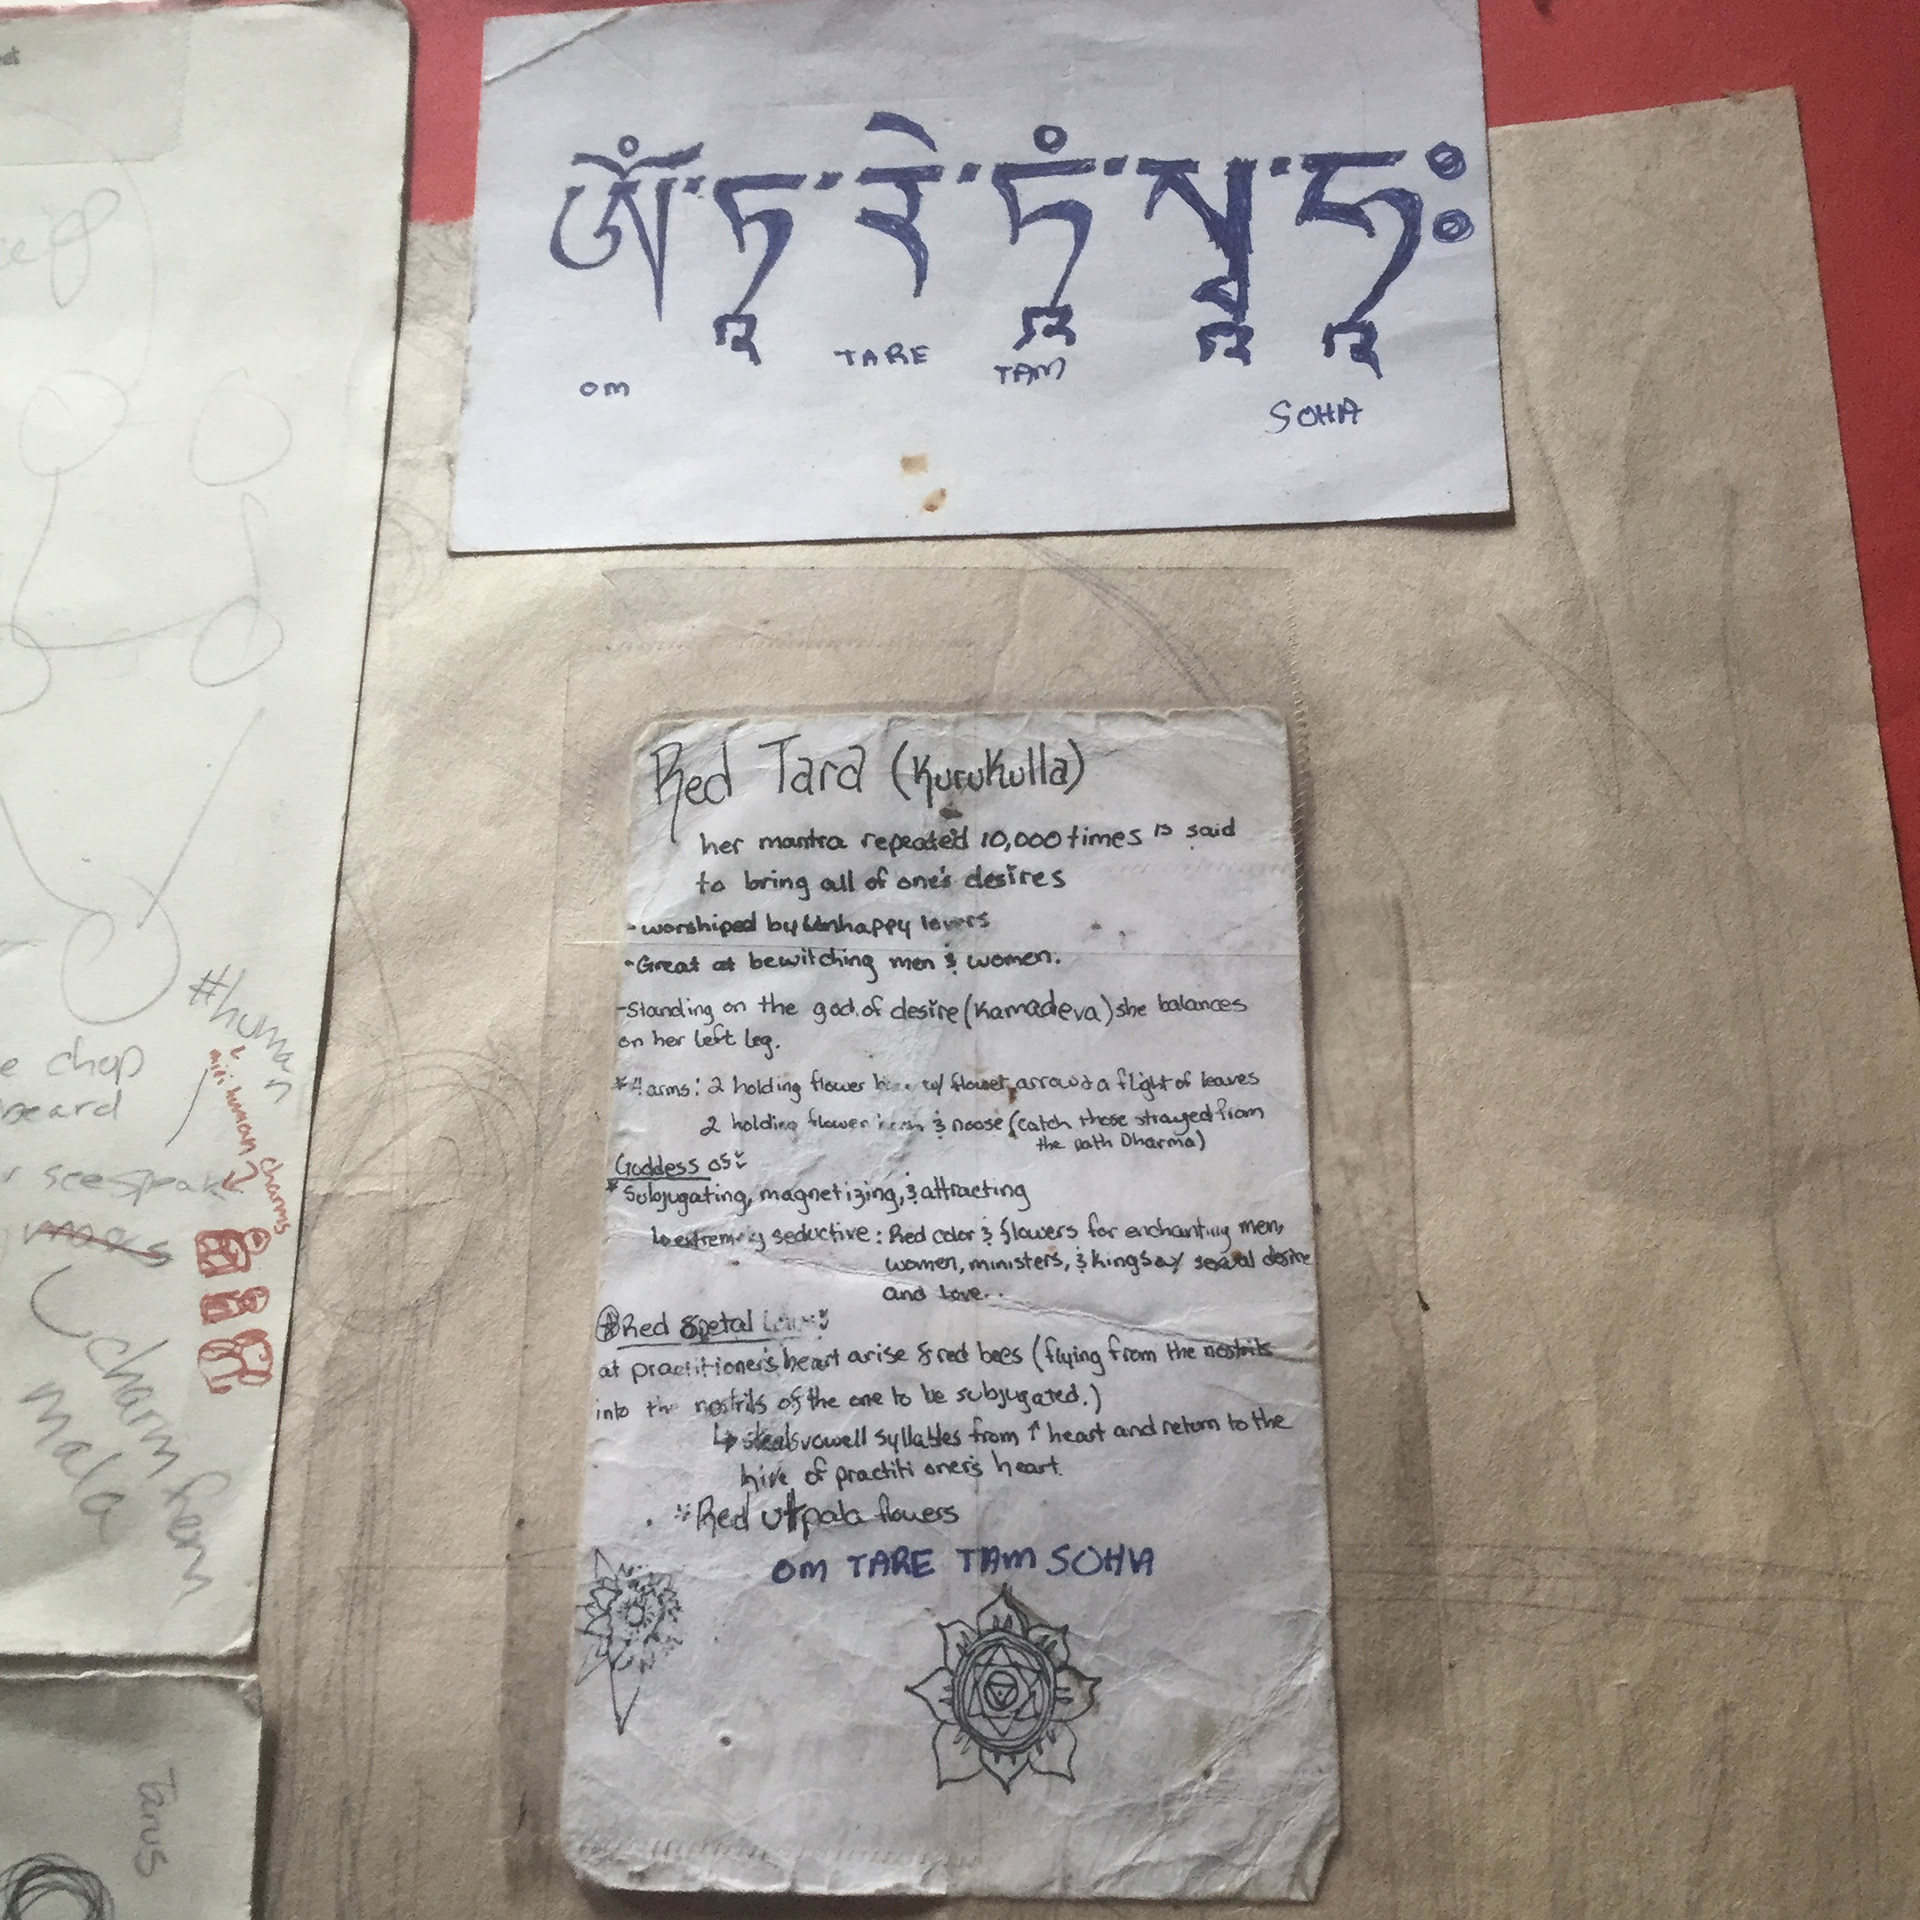 ༀ་ཏཱ་རེ་ཏཱཾ་སྭཱ་ཧཱཿ
OM TARE TAM
SOHA
Red Tara (Kurukulla)
her mantra repeated 10,000 times is said
to bring all of one's desires
- worshiped by unhappy lovers
- Great at bewitching men & women.
- Standing on the god of desire (Kamadeva) she balances
on her left leg.
* 4 arms: 2 holding flower w/ flower arrow & a flight of leaves
2 holding flower & noose (catch those strayed from
the path Dharma)
Goddess of:
* Subjugating, magnetizing, & attracting
↳ extremely seductive: Red color & flowers for enchanting men,
women, ministers, & kings w/ sexual desire
and love..
Red 8 petal
at practitioner's heart arise 8 red bees (flying from the nostrils
into the nostrils of the one to be subjugated.)
↳ steals vowell syllables from ↑ heart and return to the
hive of practitioner's heart.
Red utpala flowers
OM TARE TAM SOHA
#human
mini human charms
chop
beard
seespeak
charm hem
mala
Tanus